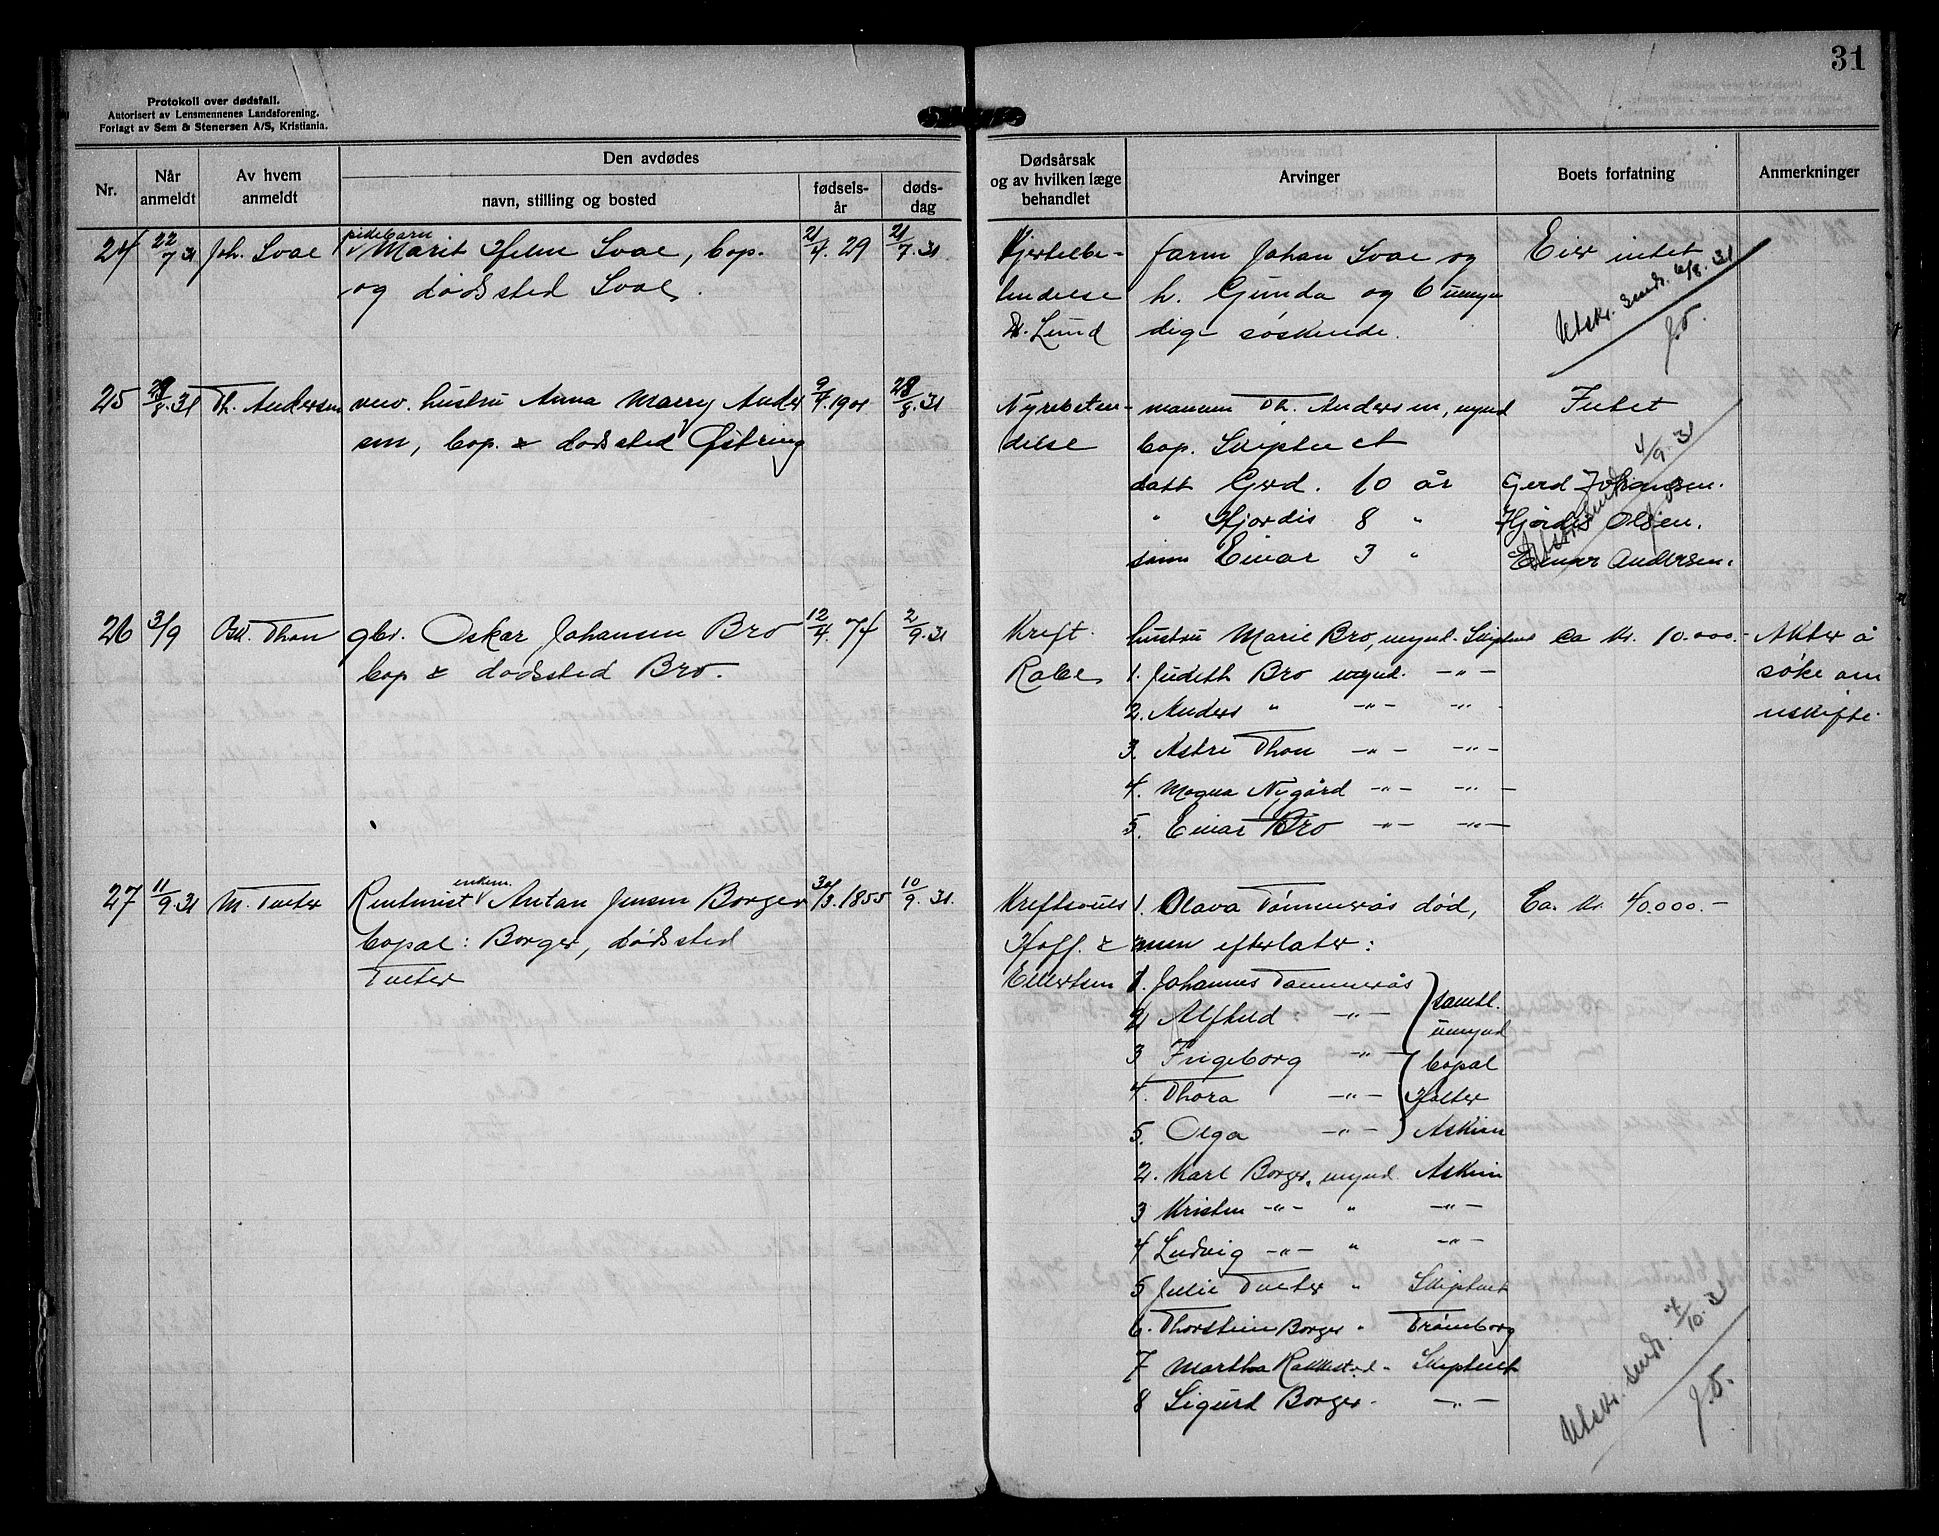 31
Protokoll over dødsfall.
Autorisert av Lensmennenes Landsforening.
Forlagt av Sem & Stenersen A/S, Kristiania.
Nr.
Når anmeldt
Av hvem anmeldt
Den avdødes
navn, stilling og bosted
fødsels-år
døds-dag
Dødsårsak og av hvilken læge behandlet
Arvinger
Boets forfatning
Anmerkninger
24 22/7 31 Joh. Svae pikebarn Marit Helene Svae, bop. 21/4. 29 21/7. 31
og dødssted Svae.
Hjertelbe-
tendelse
Dr. Lund
farm Johan Svae og
h. Gunda og 6 umyn
dige søskende.
Eier intet
Utskr. sendt. 6/8. 31
J.O.
25 29/8. 31 Th. Andersen hustru Anna Marry Ander 9/4. 1901 28/8. 31
sen, bop. & dødssted Østring
Nyrebeten-
delse
mannen Th. Andersen, mynd
bop. Skiptvet
datt Gerd. 10 år Gerd Johansen.
" Hjordis 8 " Hjørdis Olsen.
sønn Einar 3 " Einar Andersen.
Intet
4/9. 31
26 3/9 Thon gbr. Oskar Johansen Bro 12/4. 74 2/9. 31
bop & dødssted Bro.
Kreft.
Rabe
hustru Marie Bro, mynd. Skiptvet ca kr. 10.000.- Akter å
1. Judith Bro mynd. -"- søke om
2. Anders " -"- -"- uskifte.
3. Astri Thon -"- -"-
4. Magna Nygård -"- -"-
5. Einar Bro -"- -"-
27 11/9. 31 M. Tveter Rentenist enkem. Anton Jensen Borger 30/3. 1855 10/9. 31.
bopæl: Borger, dødssted
Tveter
Kreftsvulst
Hoff. &
Ellertsen
1. Olava Tømmerås død, Ca. kr. 40.000.-
men efterlater:
1. Johannes Tømmerås
2 Alfhild -"-
3 Ingeborg -"-
4. Thora -"-
5. Olga -"-
samtl.
umynd
bopæl
Holter
Askim
2. Karl Borger, mynd. Askim
3 Kristen -"- " -"-
4 Ludvig -"- " -"-
5 Julie Tveter " Skiptvet
6. Thorstein Borger " Trømborg
7 Martha Rakkestad " Skiptvet
8 Sigurd Borger. -"-
Utskr. sendt. 4/10. 31
J.O.